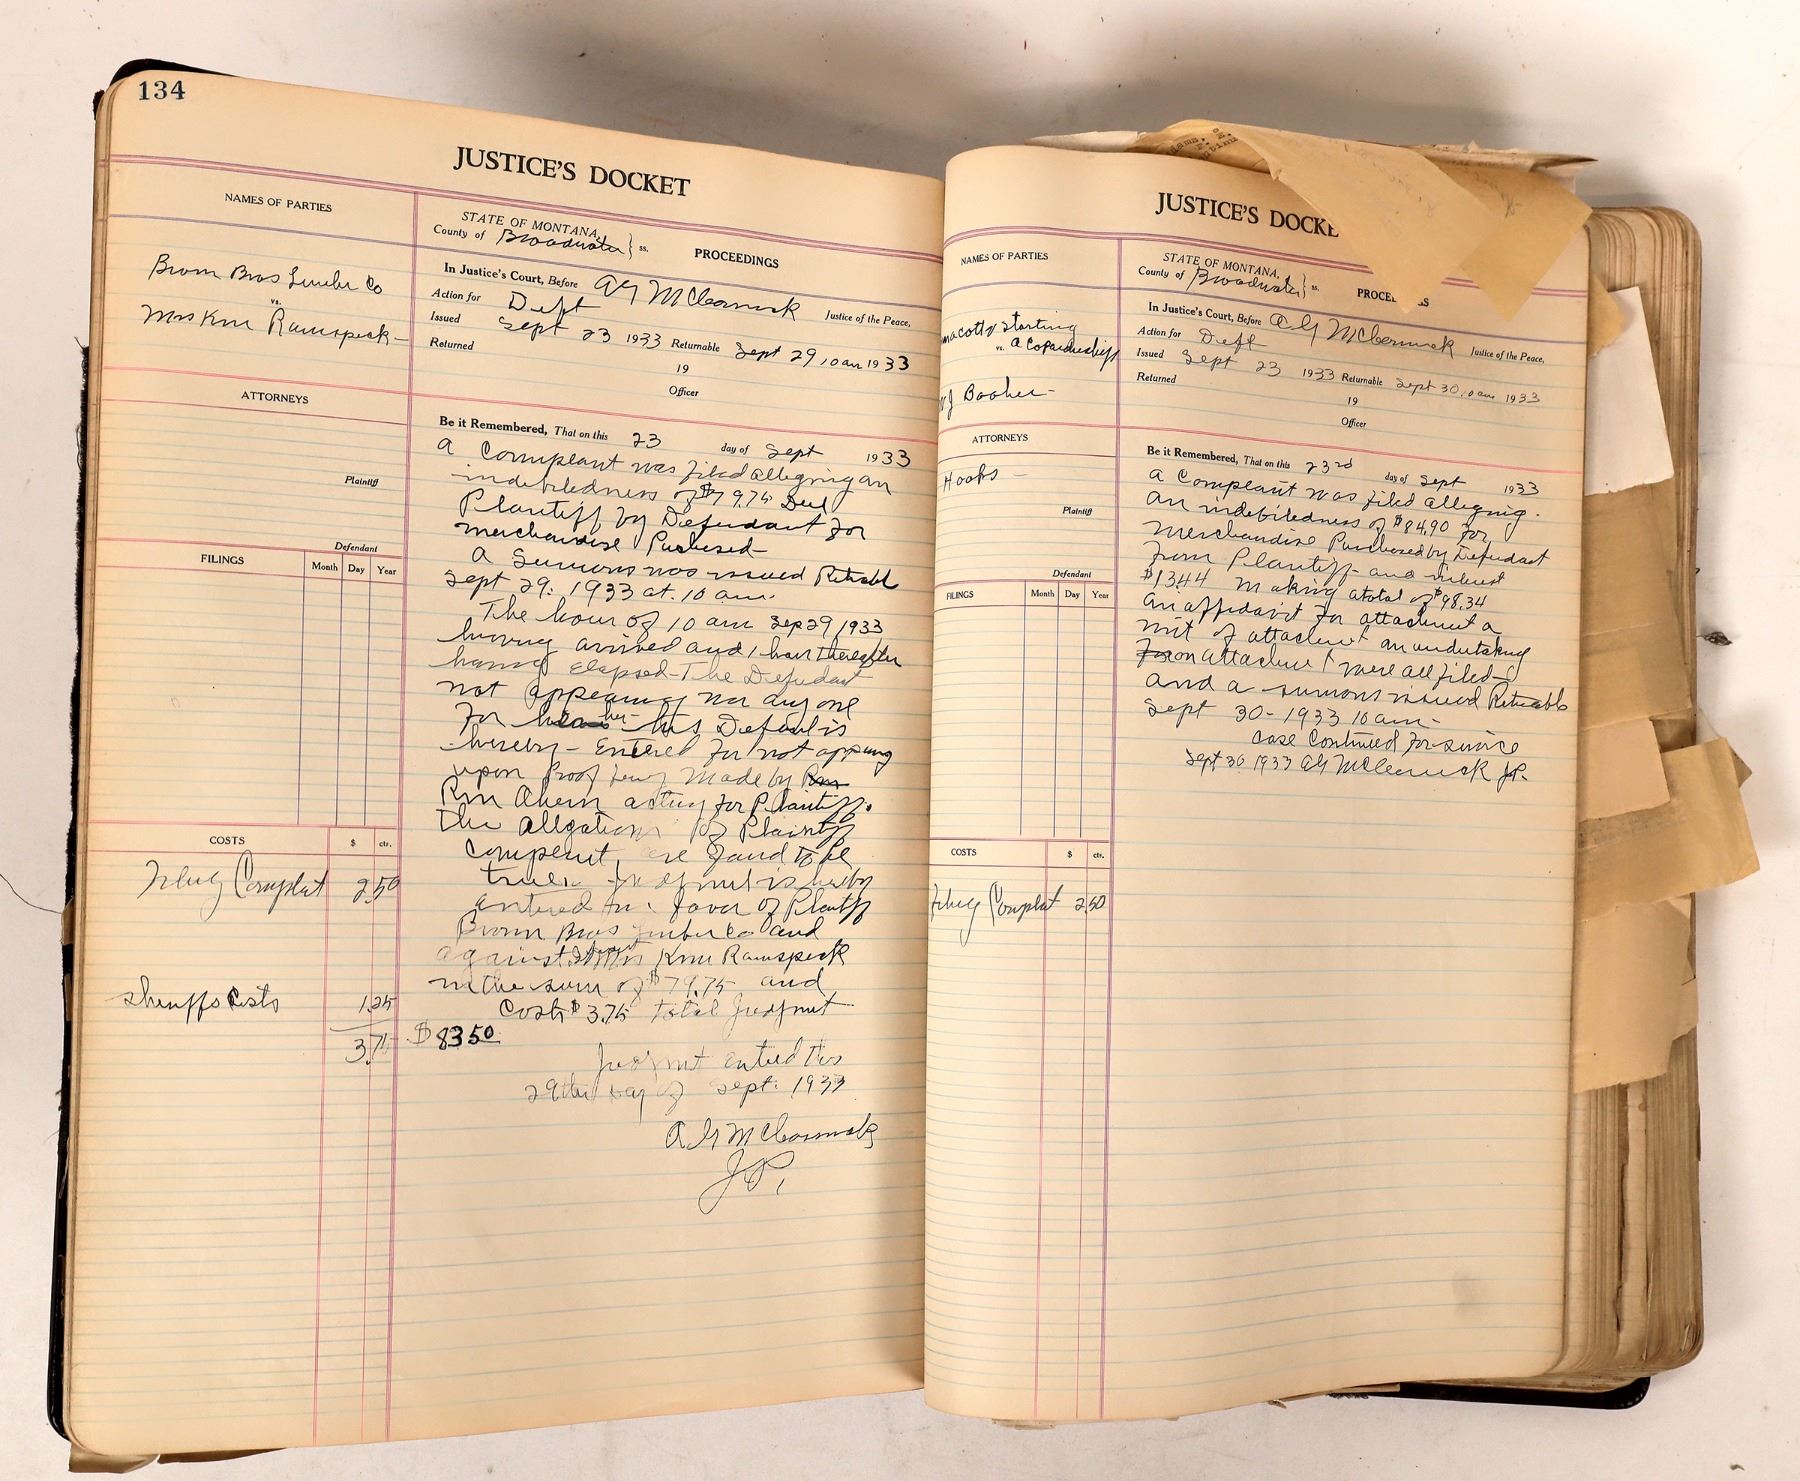 134
JUSTICE'S DOCKET
NAMES OF PARTIES
STATE OF MONTANA,
County of Broadwater } ss.
PROCEEDINGS
Brown Bros Lumber Co
vs.
Mrs Km Ramspeck
In Justice's Court, Before A G McCormick Justice of the Peace,
Action for Debt
Issued Sept 23 1933 Returnable Sept 29 10 am 1933
Returned 19
Officer
ATTORNEYS
Plaintiff
Defendant
FILINGS Month Day Year
COSTS $ cts.
Filing Complat 2.50
Sheriffs Costs 1.25
3.75
Be it Remembered, That on this 23 day of Sept 1933
A Complaint was filed alleging an
indebtedness of $79.75
Plantiff by Defendant for
merchandise Puchased
A Sumons was issued Retnable
Sept 29: 1933 at 10 am.
The hour of 10 am Sep 29 1933
having arrived and 1 hour thereafter
having elapsed - The Defendant
not appearing nor anyone
for her his Default is
hereby - Entered for not appearing
upon Proof being made by
Ahern acting for Plaintiff.
The Allgations of Plaintiff
Complent are found to be
true. Judgment is hereby
entered in favor of Plantiff
Brown Bros Lumber Co and
against Mrs Km Ramspeck
in the sum of $79.75 and
Costs $3.75 total Judgment
$83.50
Judgment entered this
29th day of Sept. 1933
A G McCormick
JP,
JUSTICE'S DOCKE
NAMES OF PARTIES
STATE OF MONTANA,
County of Broadwater } ss.
macott & Starting
vs. a Copartnership
J Booher
In Justice's Court, Before A G McCormick Justice of the Peace,
Action for Debt
Issued Sept 23 1933 Returnable Sept 30 10 am 1933
Returned 19
Officer
ATTORNEYS
Hooks
Plaintiff
Defendant
FILINGS Month Day Year
COSTS $ cts.
Filing Complat 2.50
Be it Remembered, That on this 23rd day of Sept 1933
A Complaint was filed alleging
an indebtedness of $84.90 for
Merchandise Purchased by Defendant
from Plantiff and interest
$13.44 making a total of $98.34
An affidavit for attachment a
writ of attachment an undertaking
For on attachment were all filed
and a sumons issued Retnable
Sept 30 - 1933 10 am -
case Continued for service
Sept 30 1933 A G McCormick JP.